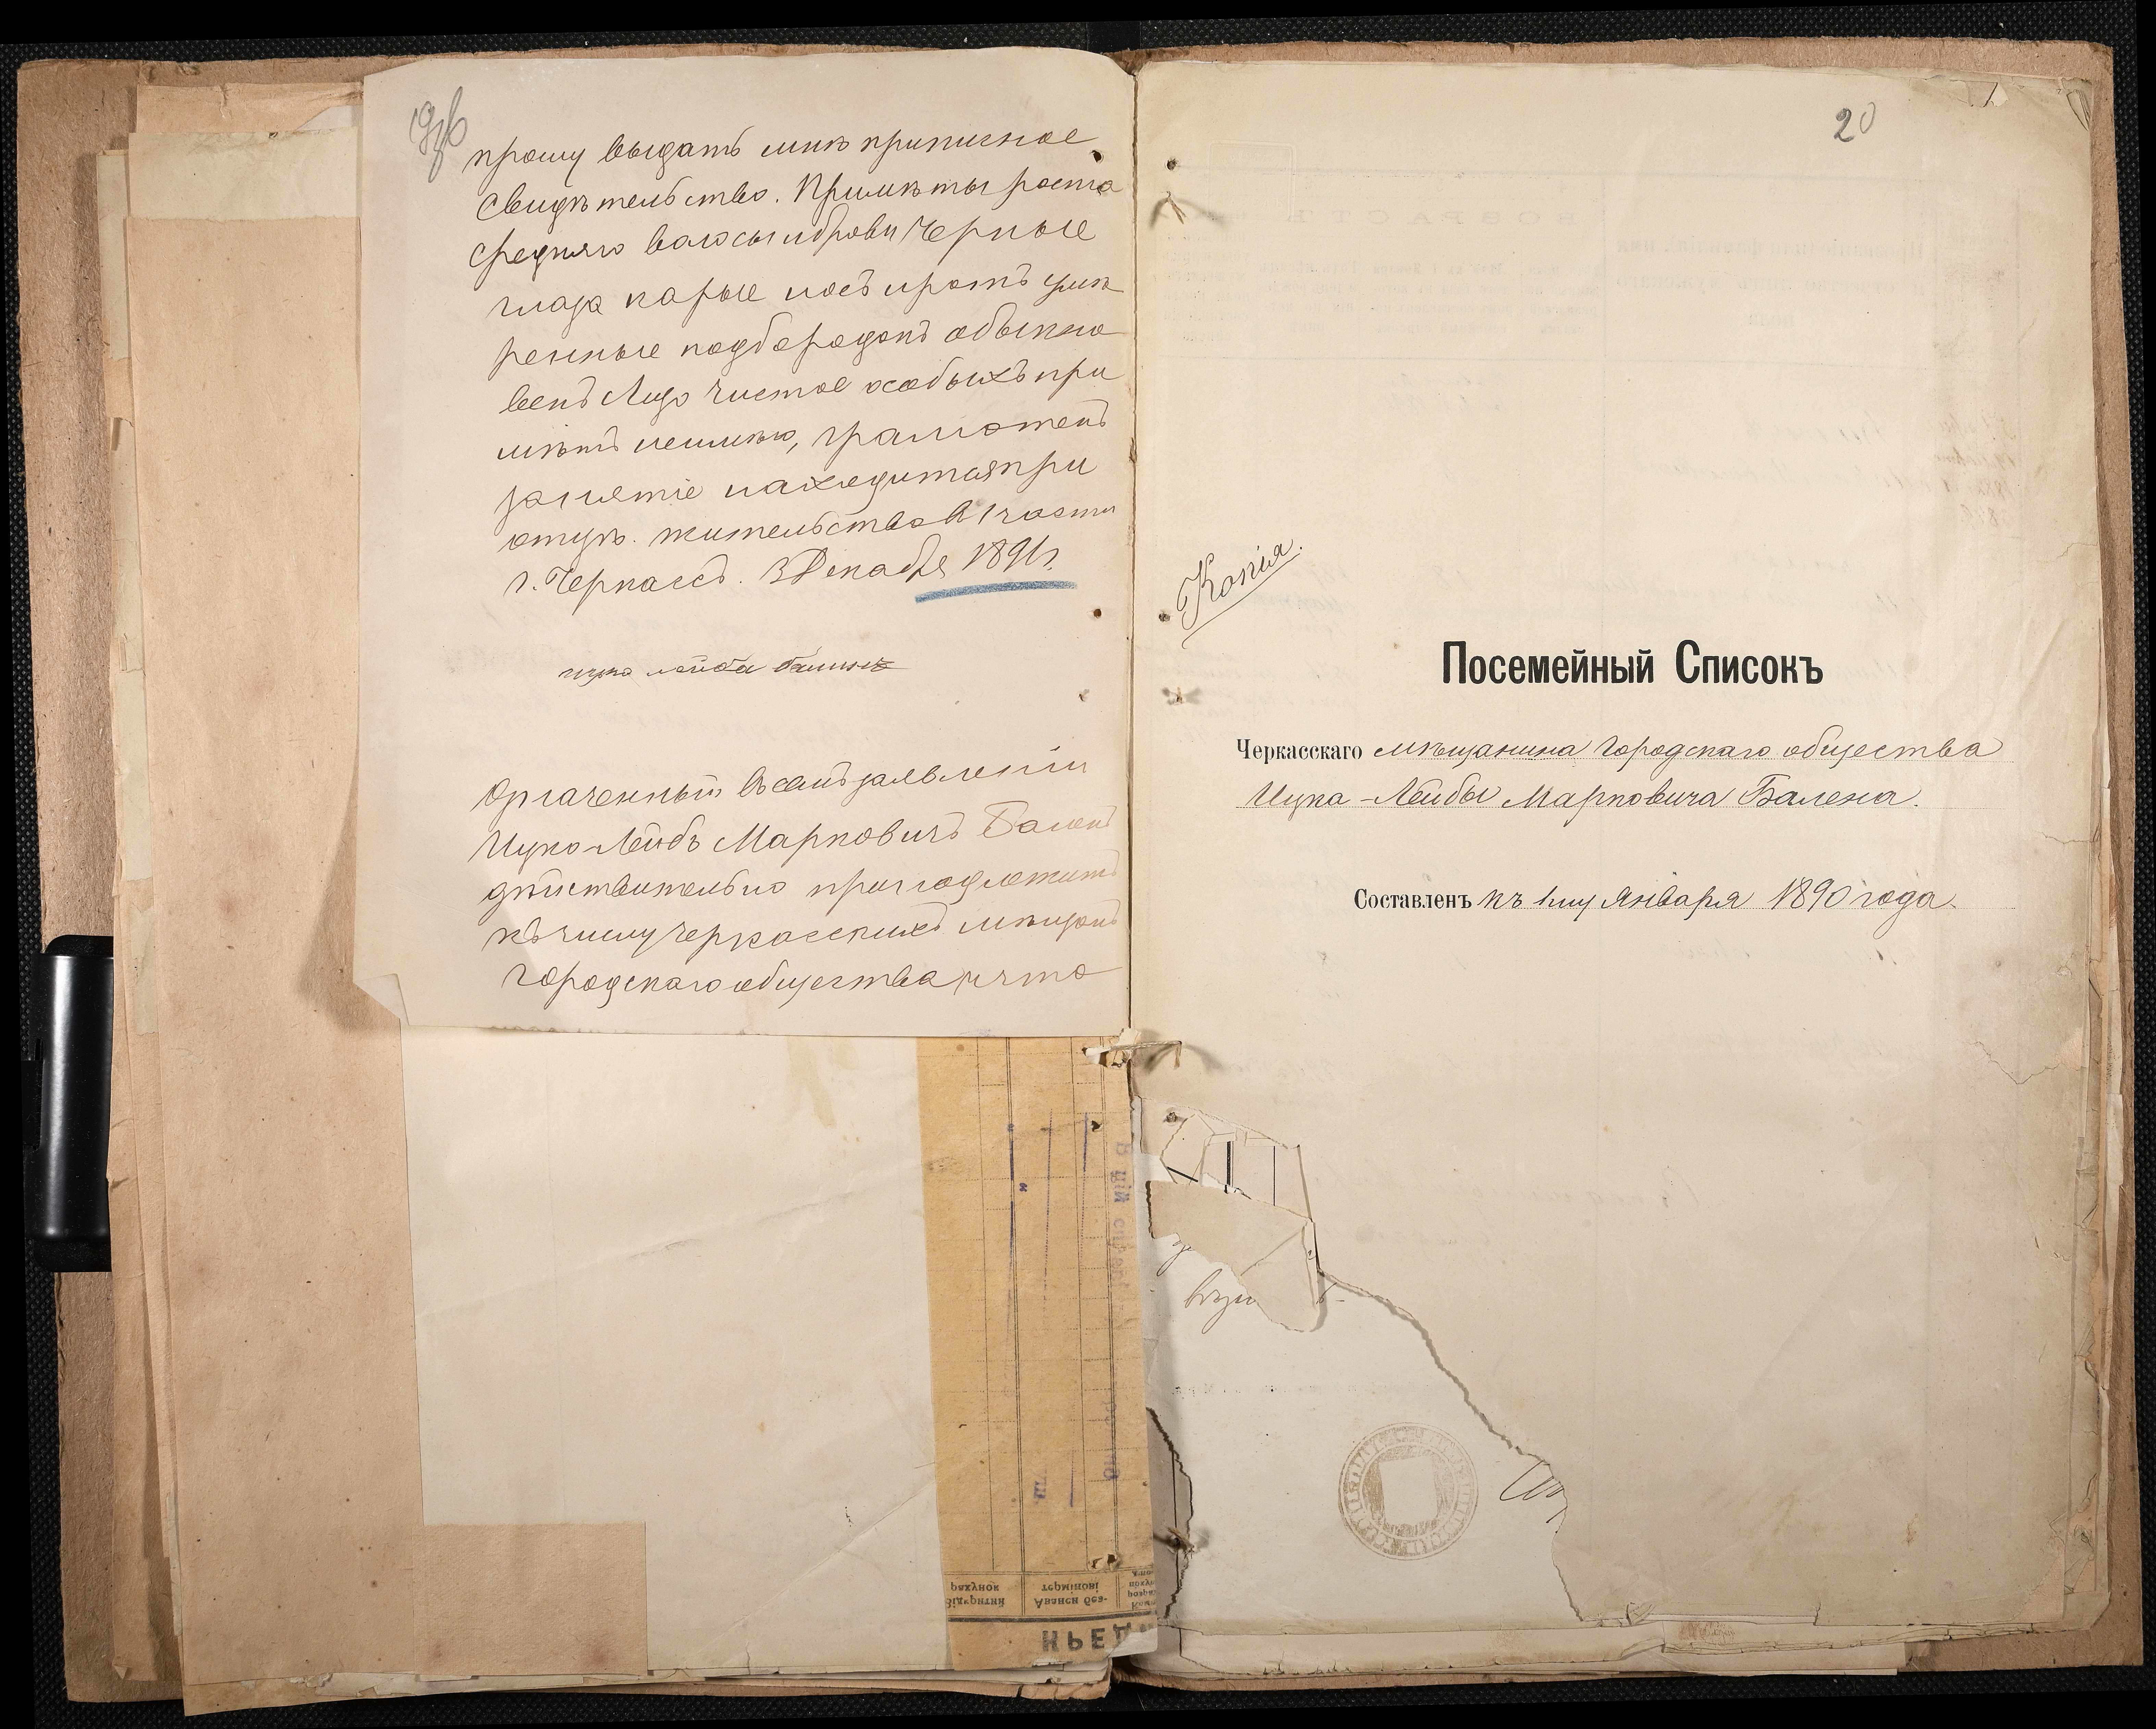 прошу выдать мнѣ приписное
свидѣтельство. Примѣты роста
средняго волосы и брови черные
глаза карые носъ и ротъ умѣ
ренные подбородокъ обыкно
венъ Лицо чистое особыхъ при
мѣтъ неимѣю, грамотенъ
занятіе находится при
отцѣ. жительство в 1 части
г. Черкассъ. 3 Декабря 1891 г.
ицко лейба балинъ
Означенный въ семъ заявленіи
Ицко-Лейбъ Марковичъ Баленъ
дѣйствительно принадлежитъ
къ числу черкасскихъ мѣщанъ
городскаго общества и что
20
Копія.
Посемейный Списокъ
Черкасскаго мѣщанина городскаго общества
Ицка-Лейбы Марковича Балена.
Составленъ къ 1му Января 1890 года.
рахунок
Відкритий
термінові
Аванси без-
КРЕД